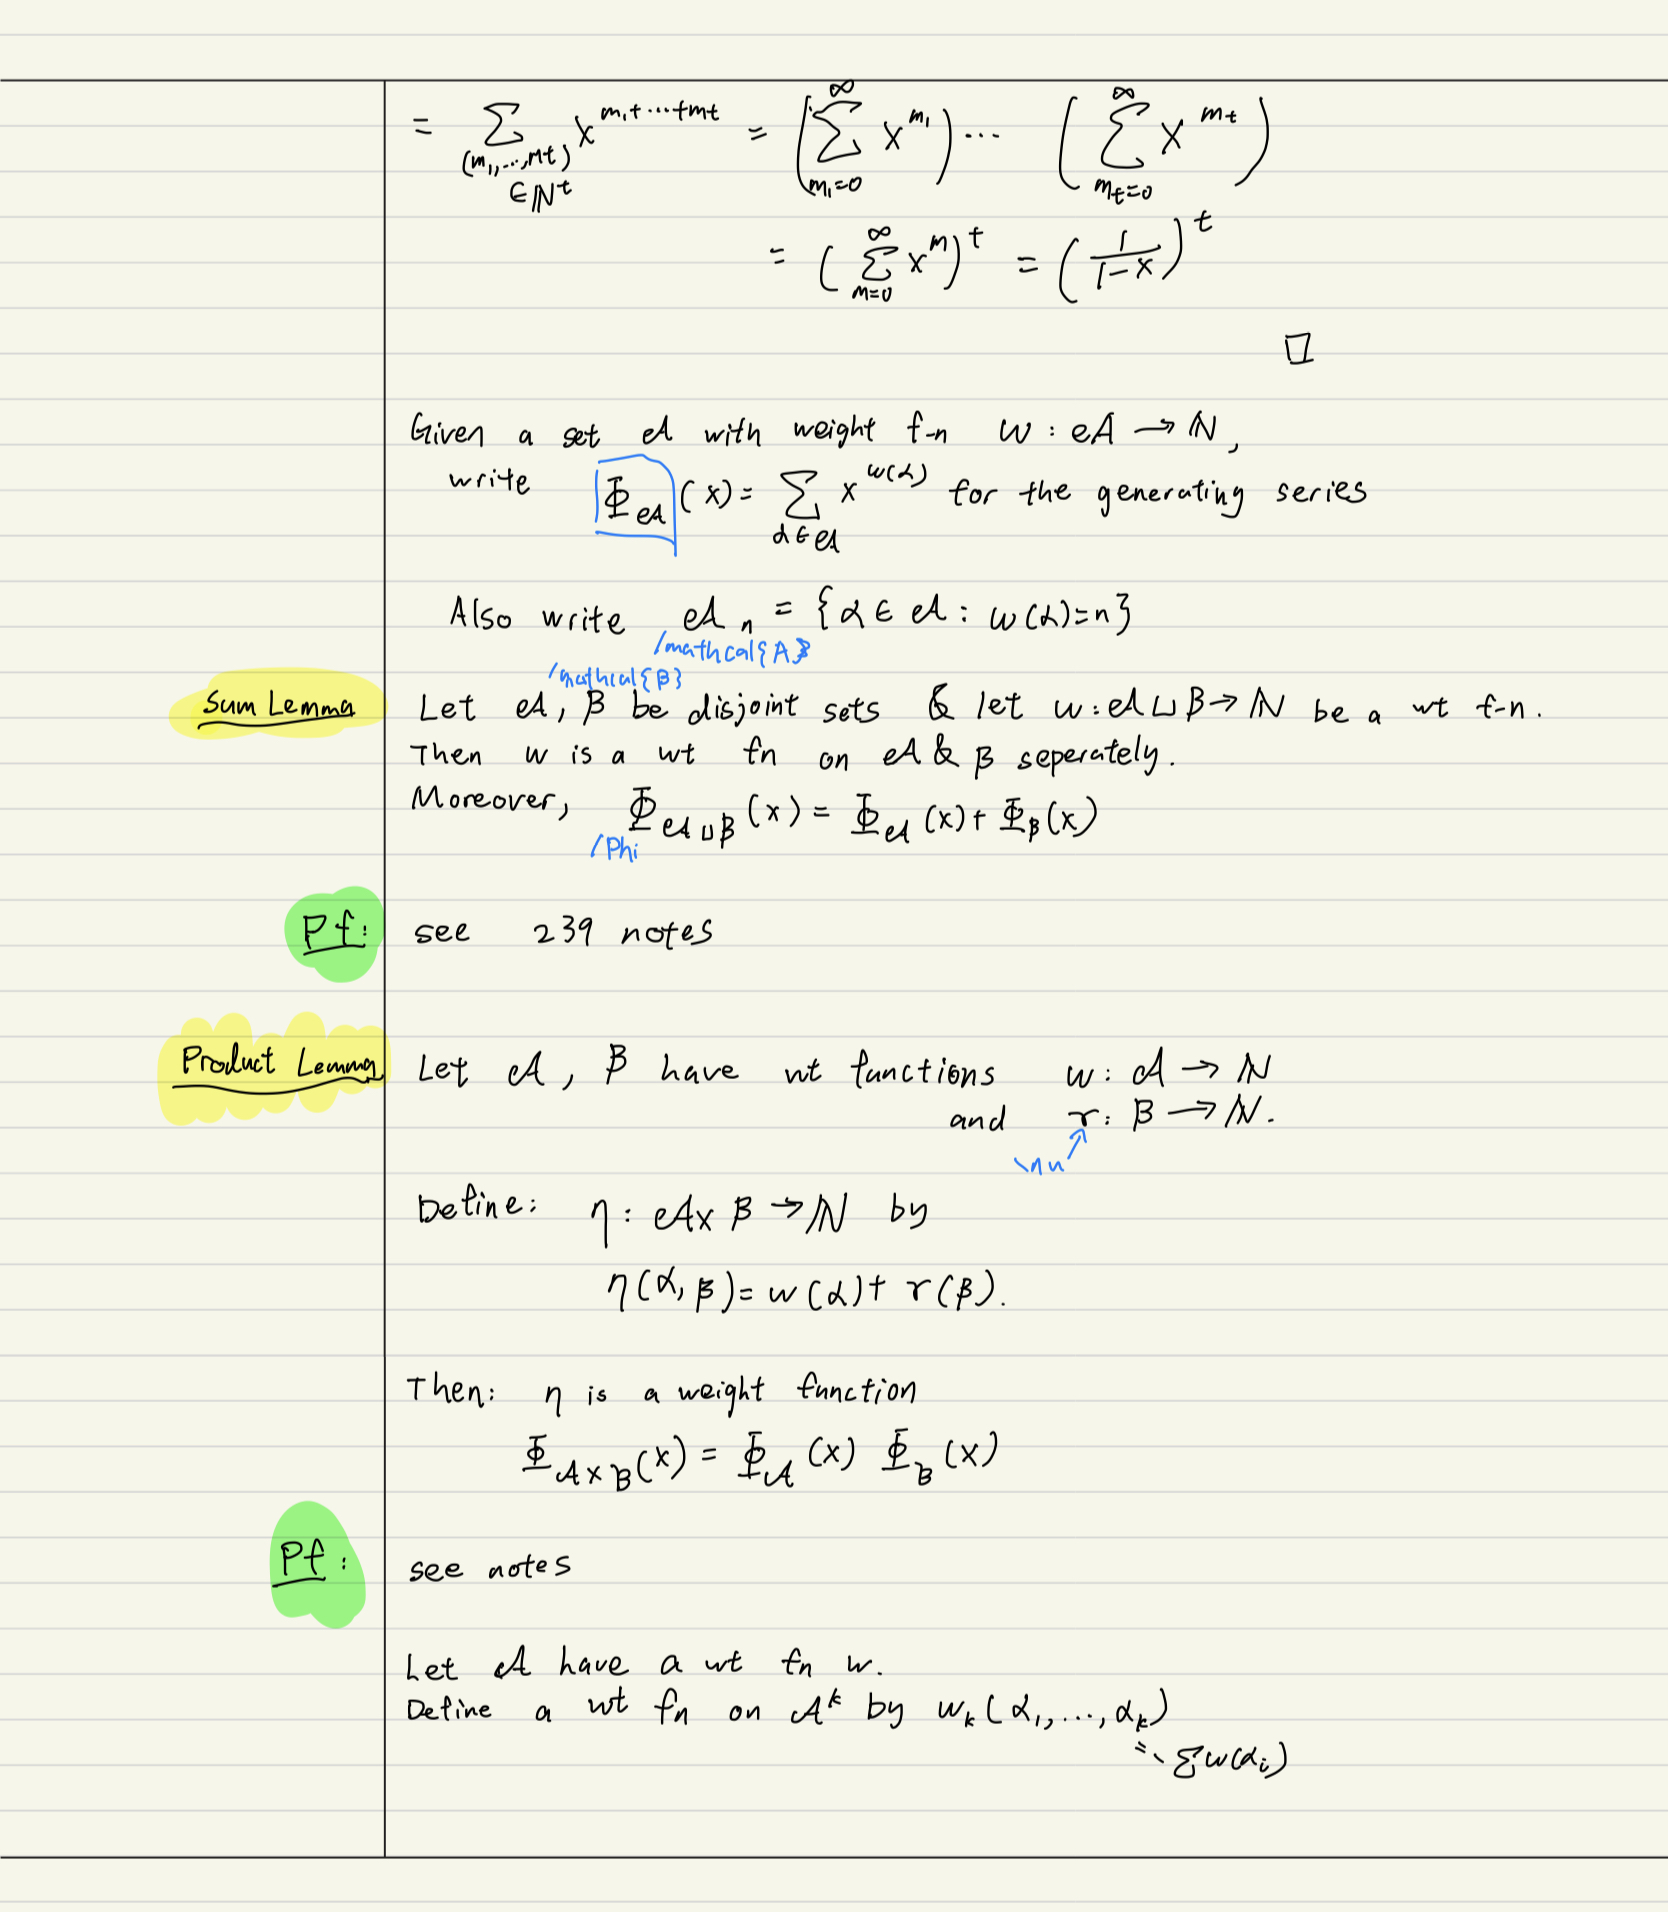 = ∑_{(m₁,...,mt) ∈ ℕ^t} x^{m₁+...+mt} = (∑_{m₁=0}^∞ x^{m₁}) ... (∑_{mt=0}^∞ x^{mt})
= (∑_{m=0}^∞ x^m)^t = (1/(1-x))^t
□
Given a set 𝒜 with weight f-n w : 𝒜 → ℕ,
write Φ_𝒜 (x) = ∑_{α∈𝒜} x^{w(α)} for the generating series
Also write 𝒜_n = {α ∈ 𝒜 : w(α)=n}
/mathcal{A}
/mathcal{B}
Sum Lemma Let 𝒜, β be disjoint sets & let w: 𝒜 ⊔ β → ℕ be a wt f-n.
Then w is a wt fn on 𝒜 & β seperately.
Moreover, Φ_{𝒜⊔β} (x) = Φ_𝒜 (x) + Φ_β (x)
/Phi
Pf: see 239 notes
Product Lemma Let 𝒜, β have wt functions w: 𝒜 → ℕ
and r: β → ℕ.
\nu
Define: η: 𝒜 × β → ℕ by
η(α, β) = w(α) + r(β).
Then: η is a weight function
Φ_{𝒜×ℬ}(x) = Φ_𝒜 (x) Φ_ℬ (x)
Pf: see notes
Let 𝒜 have a wt fn w.
Define a wt fn on 𝒜^k by w_k (α₁, ..., α_k)
= ∑w(α_i)